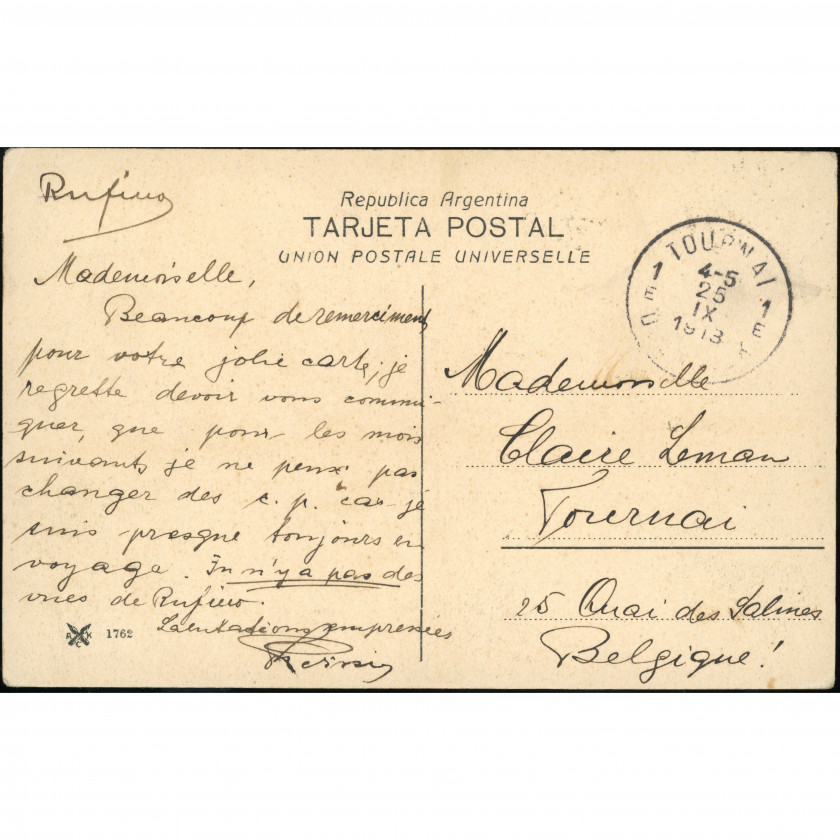 Rufino
Republica Argentina
TARJETA POSTAL
UNION POSTALE UNIVERSELLE
Mademoiselle,
Beaucoup de remerciment
pour votre jolie carte; je
regrette devoir vous commu-
quer, que pour les mois
suivants je ne peux pas
changer des c. p. car je
suis presque toujours en
voyage. In n'y a pas des
vues de Rufino.
Salutations empresées
A K C 1762
TOURNAI
1 1
4-5
25
IX
1913
Mademoiselle
Claire Leman
Tournai
25 Quai des Salines
Belgique!